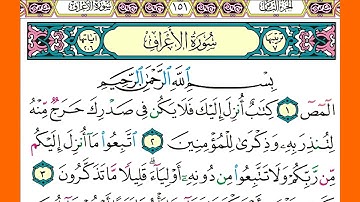 سُورَةُ الْأَعْرَافِ ١٥١
سُورَةُ الْأَعْرَافِ
بِسْمِ اللَّهِ الرَّحْمَٰنِ الرَّحِيمِ
الٓمٓصٓ ١ كِتَٰبٌ أُنزِلَ إِلَيْكَ فَلَا يَكُن فِى صَدْرِكَ حَرَجٌ مِّنْهُ
لِتُنذِرَ بِهِۦ وَذِكْرَىٰ لِلْمُؤْمِنِينَ ٢ ٱتَّبِعُوا۟ مَآ أُنزِلَ إِلَيْكُم
مِّن رَّبِّكُمْ وَلَا تَتَّبِعُوا۟ مِن دُونِهِۦٓ أَوْلِيَآءَ ۗ قَلِيلًا مَّا تَذَكَّرُونَ ٣